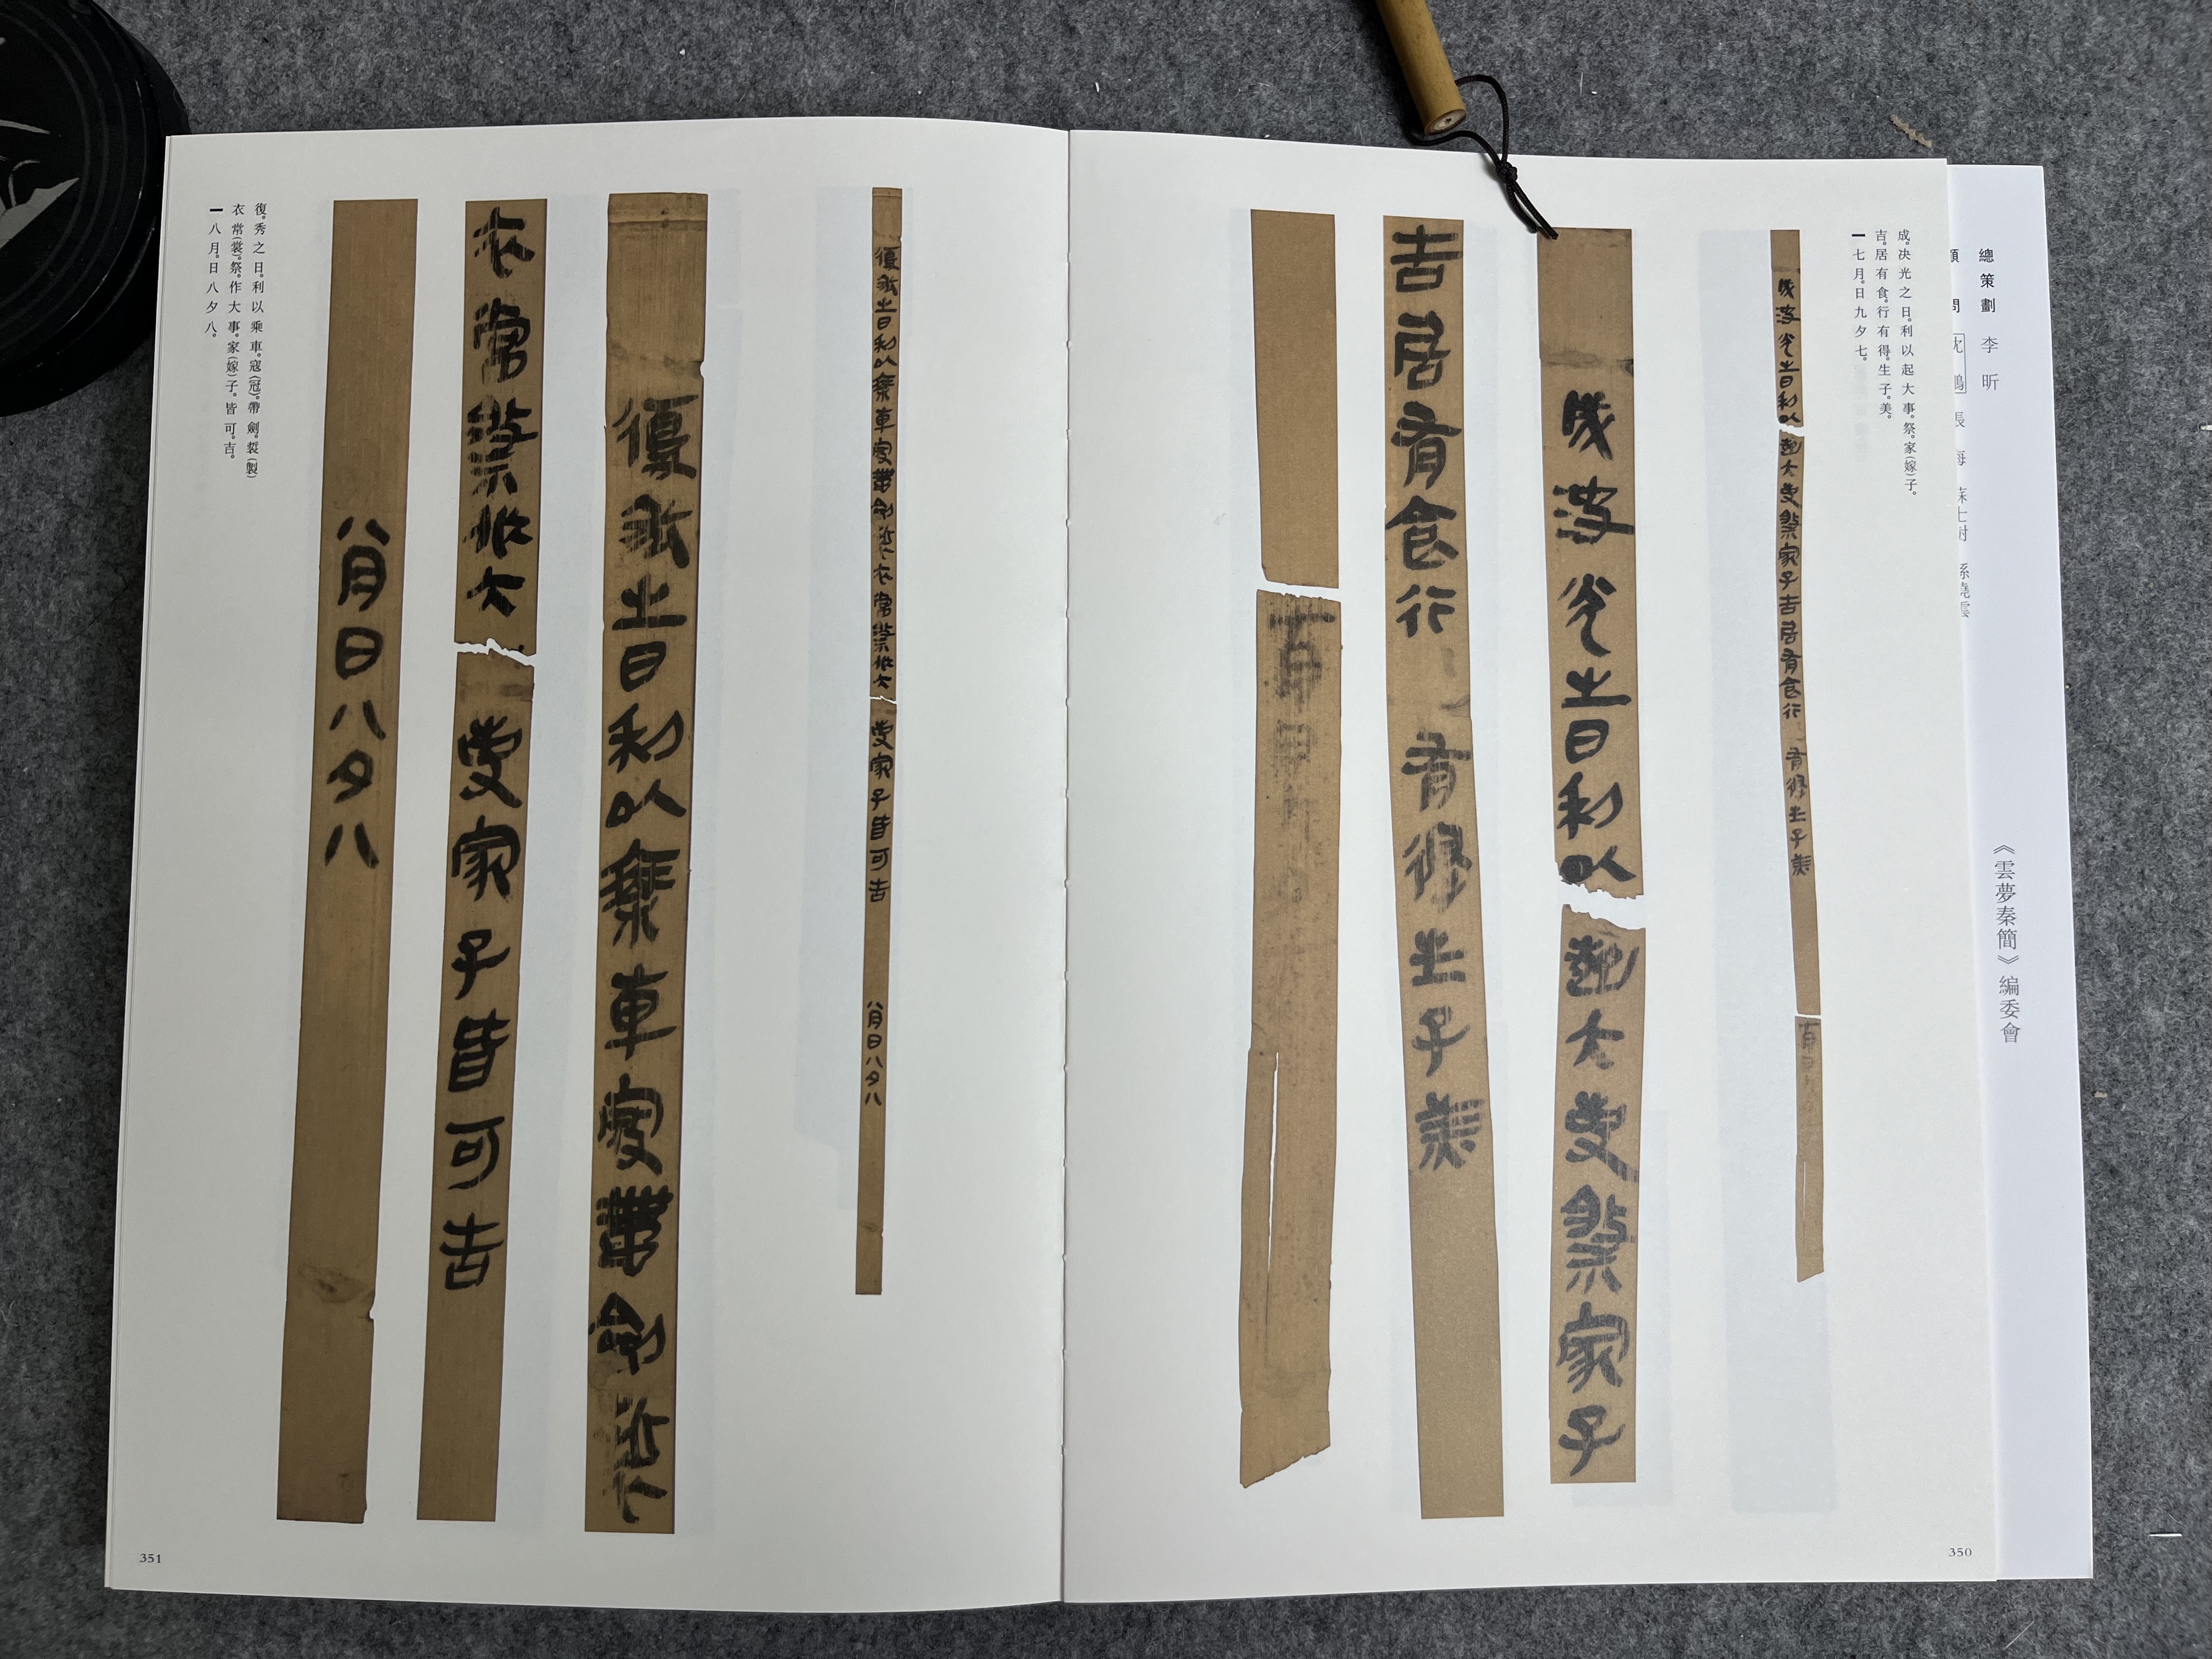 總策劃 李昕
《雲夢秦簡》編委會
成。决光之日。利以起大事。祭。家(嫁)子。
吉。居有食。行有得。生子。美。
━七月。日九夕七。
成决光之日利以起大事祭家子吉居有食行有得生子美
成决光之日利以起大事祭家子
吉居有食行有得生子美
七月日
350
復秀之日利以乘車寇帶劍裚衣常祭作大事家子皆可吉 八月日八夕八
復秀之日利以乘車寇帶劍裚
衣常祭作大事家子皆可吉
八月日八夕八
復。秀之日。利以乘車。寇(冠)。帶劍。裚(製)
衣常(裳)。祭。作大事。家(嫁)子。皆可。吉。
━八月。日八夕八。
351